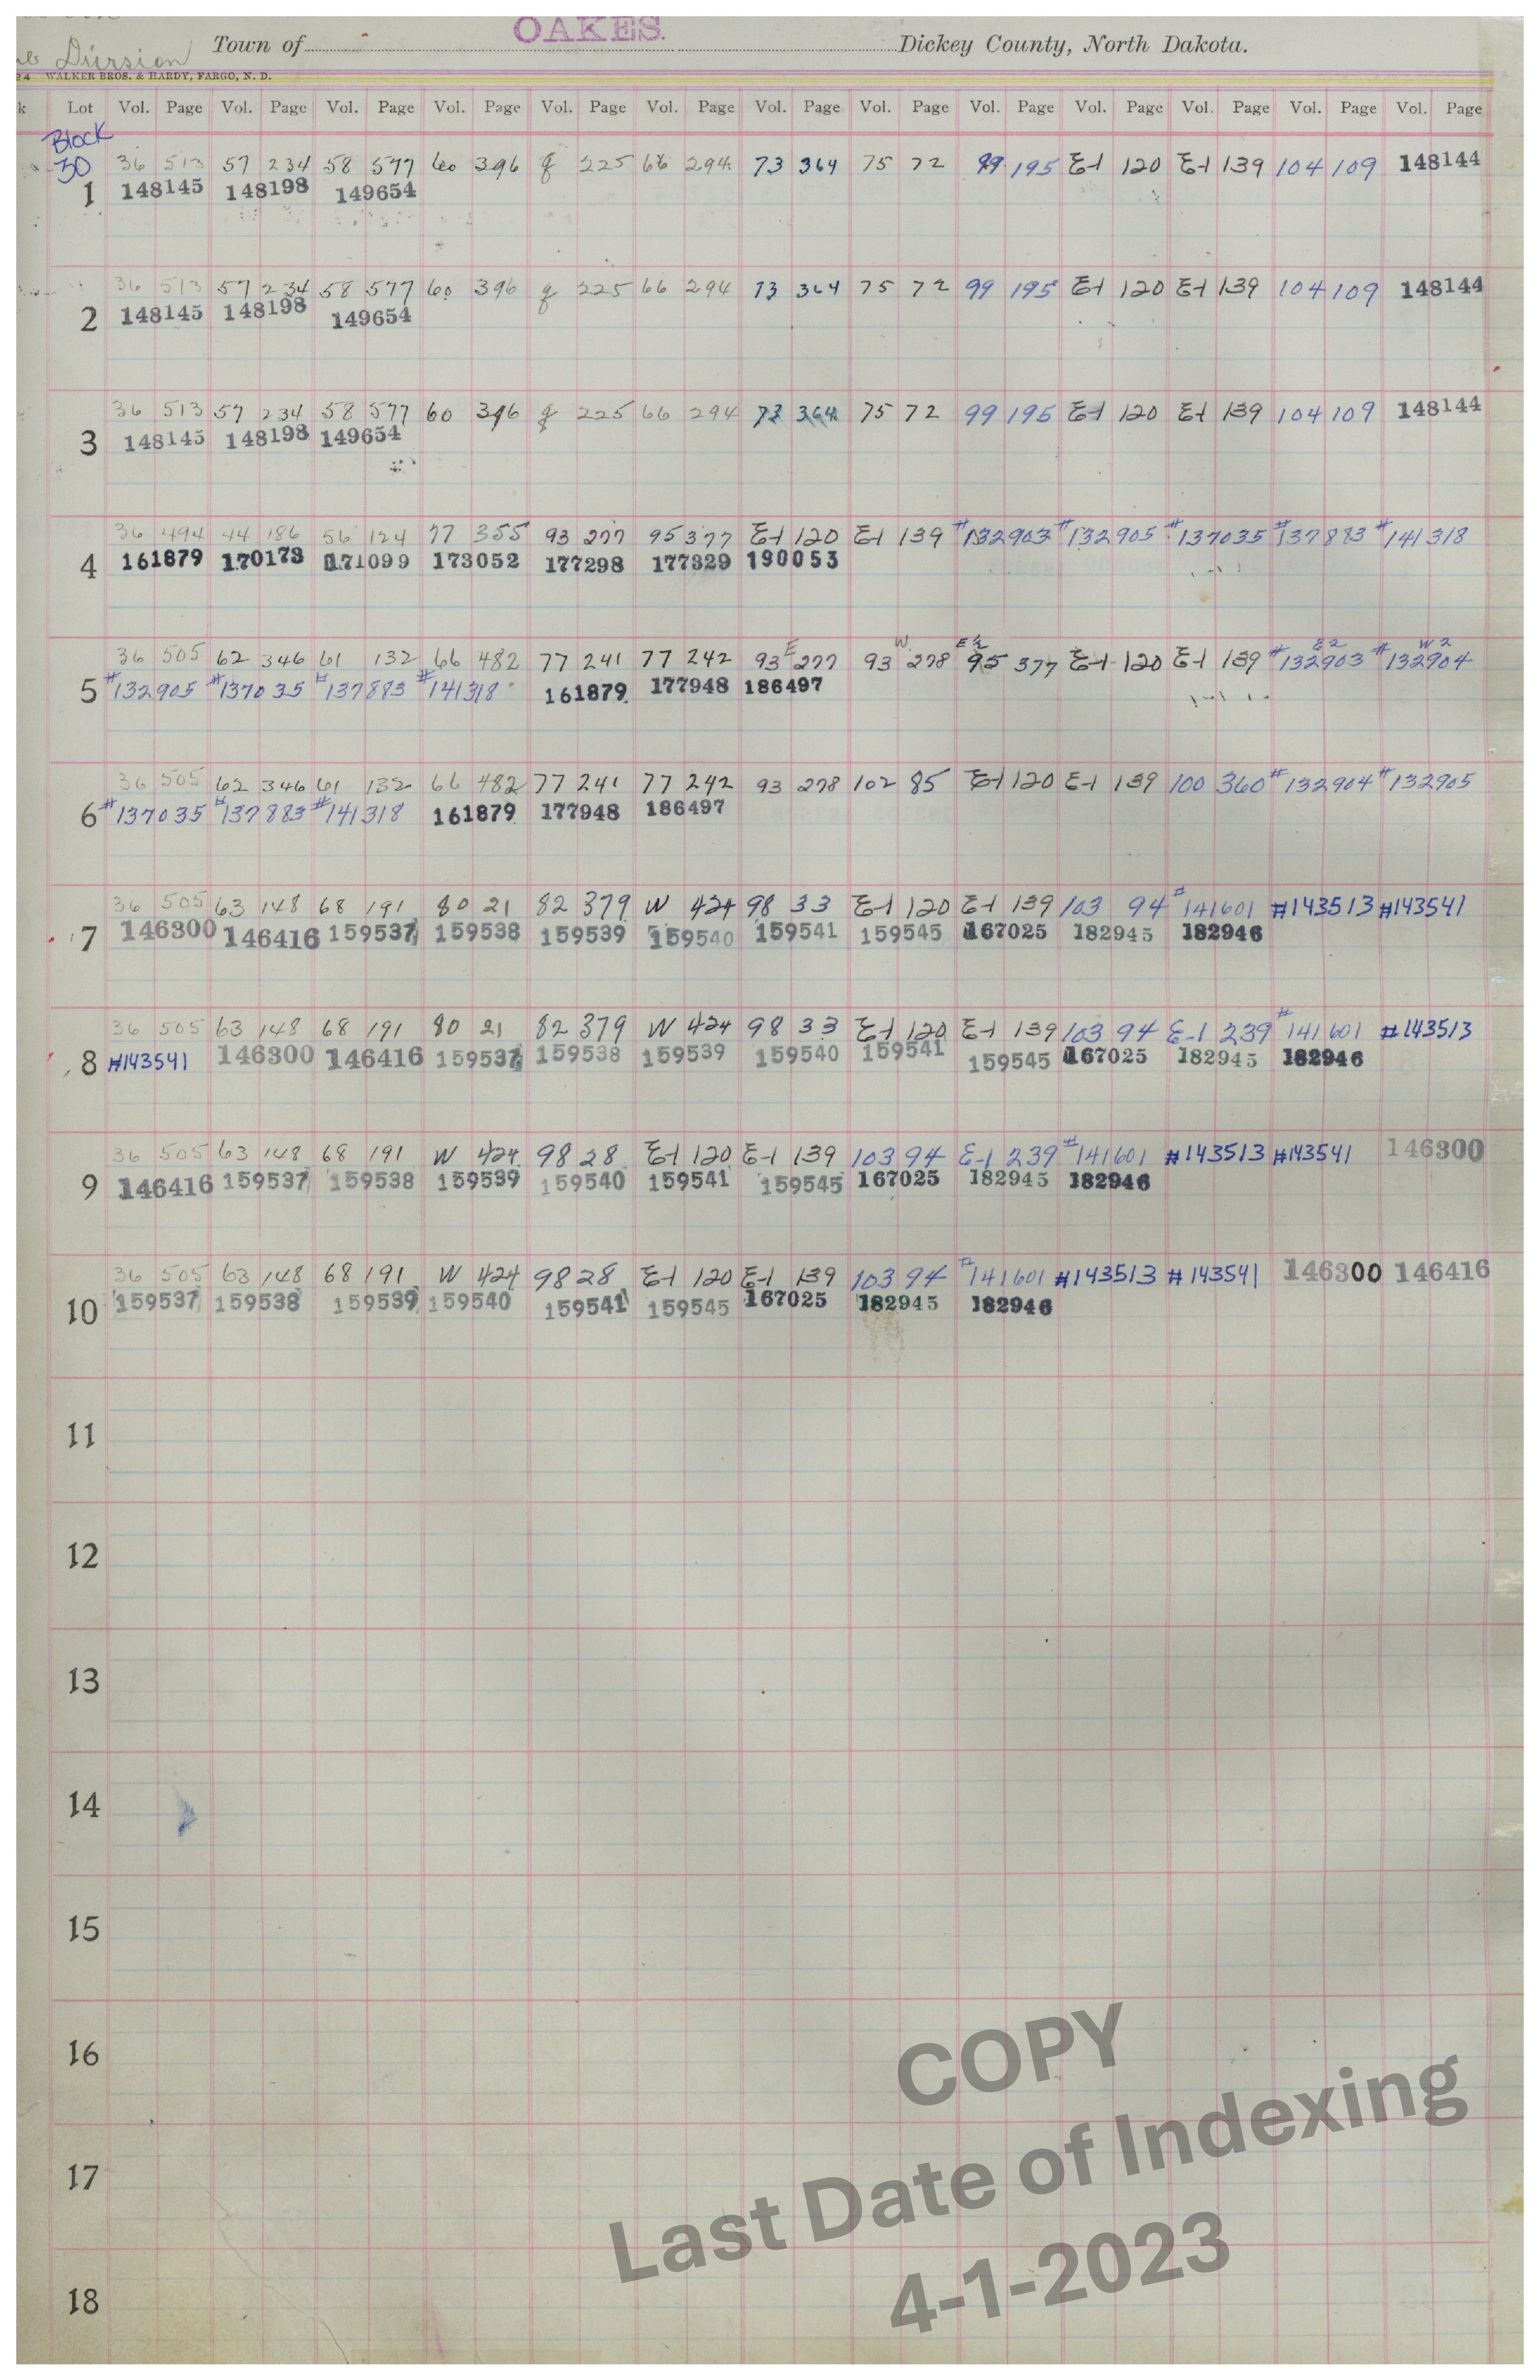 OAKES.
Town of Dickey County, North Dakota.
Division
24 WALKER BROS. & HARDY, FARGO, N. D.
k Lot Vol. Page Vol. Page Vol. Page Vol. Page Vol. Page Vol. Page Vol. Page Vol. Page Vol. Page Vol. Page Vol. Page Vol. Page Vol. Page
Block
30 36 513 57 234 58 577 60 396 g 225 66 294 73 364 75 72 99 195 E-1 120 E-1 139 104 109 148144
1 148145 148198 149654
36 513 57 234 58 577 60 396 g 225 66 294 73 364 75 72 99 195 E-1 120 E-1 139 104 109 148144
2 148145 148198 149654
36 513 57 234 58 577 60 396 g 225 66 294 73 364 75 72 99 195 E-1 120 E-1 139 104 109 148144
3 148145 148198 149654
36 494 44 186 56 124 77 355 93 277 95 377 E-1 120 E-1 139 #132903 #132905 #137035 #137883 #141318
4 161879 170173 171099 173052 177298 177329 190053
E W E½ E2 W2
36 505 62 346 61 132 66 482 77 241 77 242 93 277 93 278 95 377 E-1 120 E-1 139 #132903 #132904
5 #132905 #137035 #137883 #141318 161879 177948 186497
36 505 62 346 61 132 66 482 77 241 77 242 93 278 102 85 E-1 120 E-1 139 100 360 #132904 #132905
6 #137035 #137883 #141318 161879 177948 186497
36 505 63 148 68 191 80 21 82 379 W 424 98 33 E-1 120 E-1 139 103 94 #141601 #143513 #143541
7 146300 146416 159537 159538 159539 159540 159541 159545 167025 182945 182946
36 505 63 148 68 191 80 21 82 379 W 424 98 33 E-1 120 E-1 139 103 94 E-1 239 #141601 #143513
8 #143541 146300 146416 159537 159538 159539 159540 159541 159545 167025 182945 182946
36 505 63 148 68 191 W 424 98 28 E-1 120 E-1 139 103 94 E-1 239 #141601 #143513 #143541 146300
9 146416 159537 159538 159539 159540 159541 159545 167025 182945 182946
36 505 63 148 68 191 W 424 98 28 E-1 120 E-1 139 103 94 #141601 #143513 #143541 146300 146416
10 159537 159538 159539 159540 159541 159545 167025 182945 182946
11
12
13
14
15
16
17
18
COPY
Last Date of Indexing
4-1-2023